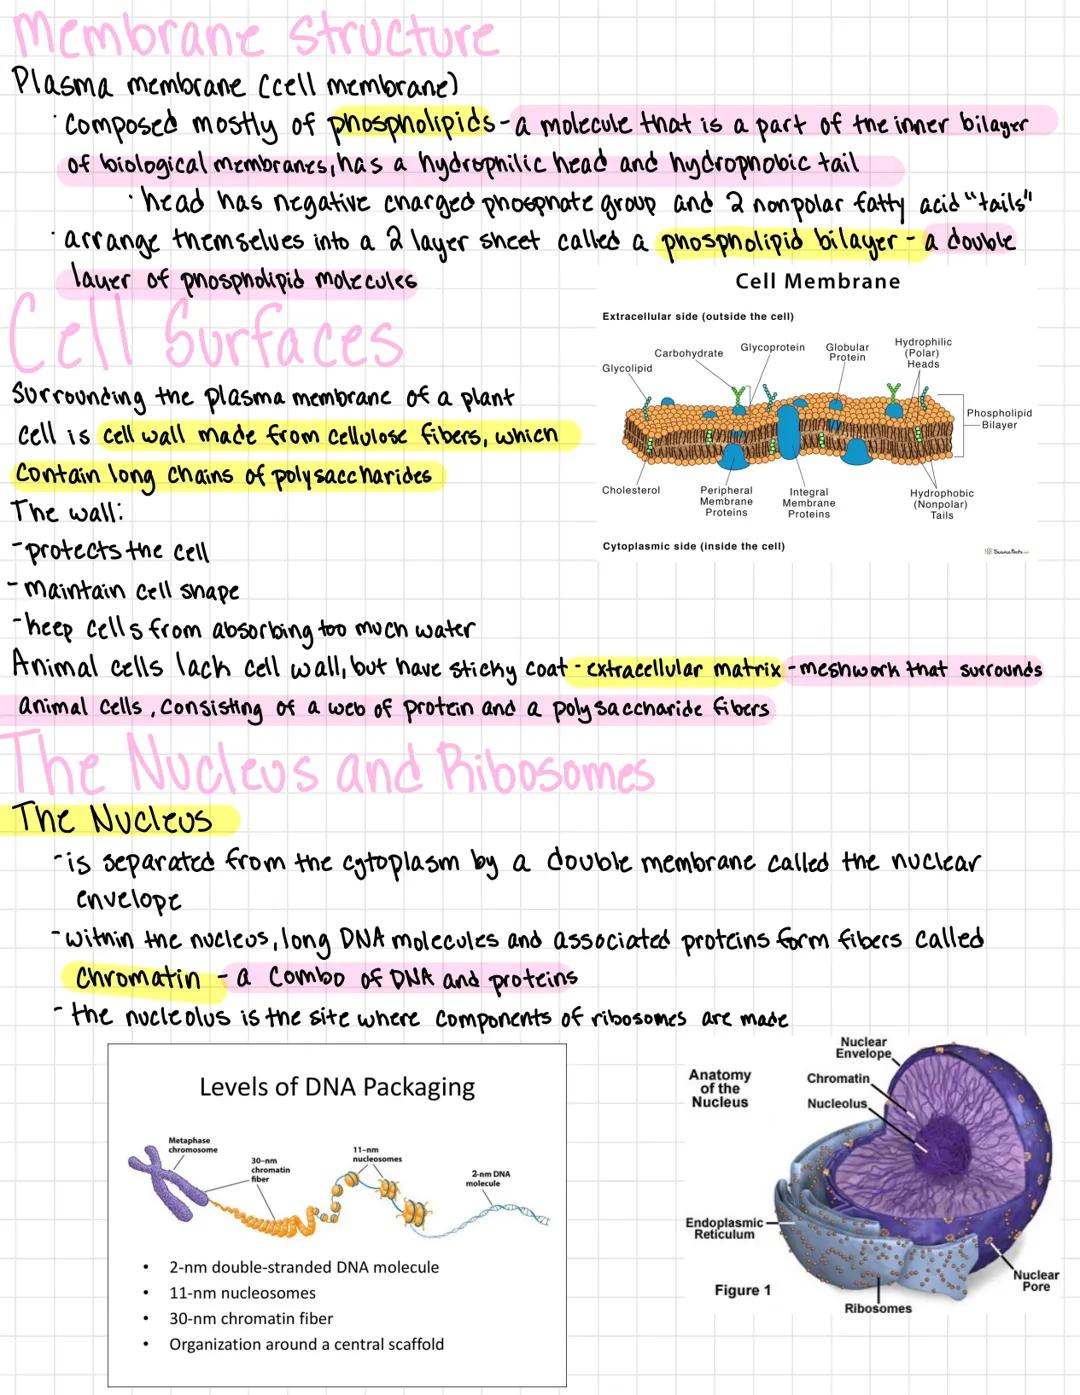 Membrane Structure
Plasma membrane (cell membrane)
· composed mostly of phospholipids - a molecule that is a part of the inner bilayer
of biological membranes, has a hydrophilic head and hydrophobic tail
· head has negative charged phosphate group and 2 nonpolar fatty acid "tails"
· arrange themselves into a 2 layer sheet called a phospholipid bilayer - a double
layer of phospholipid molecules
Cell Membrane
Extracellular side (outside the cell)
Glycolipid
Carbohydrate
Glycoprotein
Globular
Protein
Hydrophilic
(Polar)
Heads
Phospholipid
Bilayer
Cholesterol
Peripheral
Membrane
Proteins
Integral
Membrane
Proteins
Hydrophobic
(Nonpolar)
Tails
Cytoplasmic side (inside the cell)
Cell Surfaces
Surrounding the plasma membrane of a plant
cell is cell wall made from cellulose fibers, which
contain long chains of polysaccharides
The wall:
- protects the cell
- maintain cell shape
- keep cells from absorbing too much water
Animal cells lack cell wall, but have sticky coat - extracellular matrix - meshwork that surrounds
animal cells, consisting of a web of protein and a polysaccharide fibers
The Nucleus and Ribosomes
The Nucleus
- is separated from the cytoplasm by a double membrane called the nuclear
envelope
- within the nucleus, long DNA molecules and associated proteins form fibers called
chromatin - a combo of DNA and proteins
- the nucleolus is the site where components of ribosomes are made
Levels of DNA Packaging
Metaphase
chromosome
30-nm
chromatin
fiber
11-nm
nucleosomes
2-nm DNA
molecule
• 2-nm double-stranded DNA molecule
• 11-nm nucleosomes
• 30-nm chromatin fiber
• Organization around a central scaffold
Anatomy
of the
Nucleus
Nuclear
Envelope
Chromatin
Nucleolus
Endoplasmic
Reticulum
Figure 1
Ribosomes
Nuclear
Pore